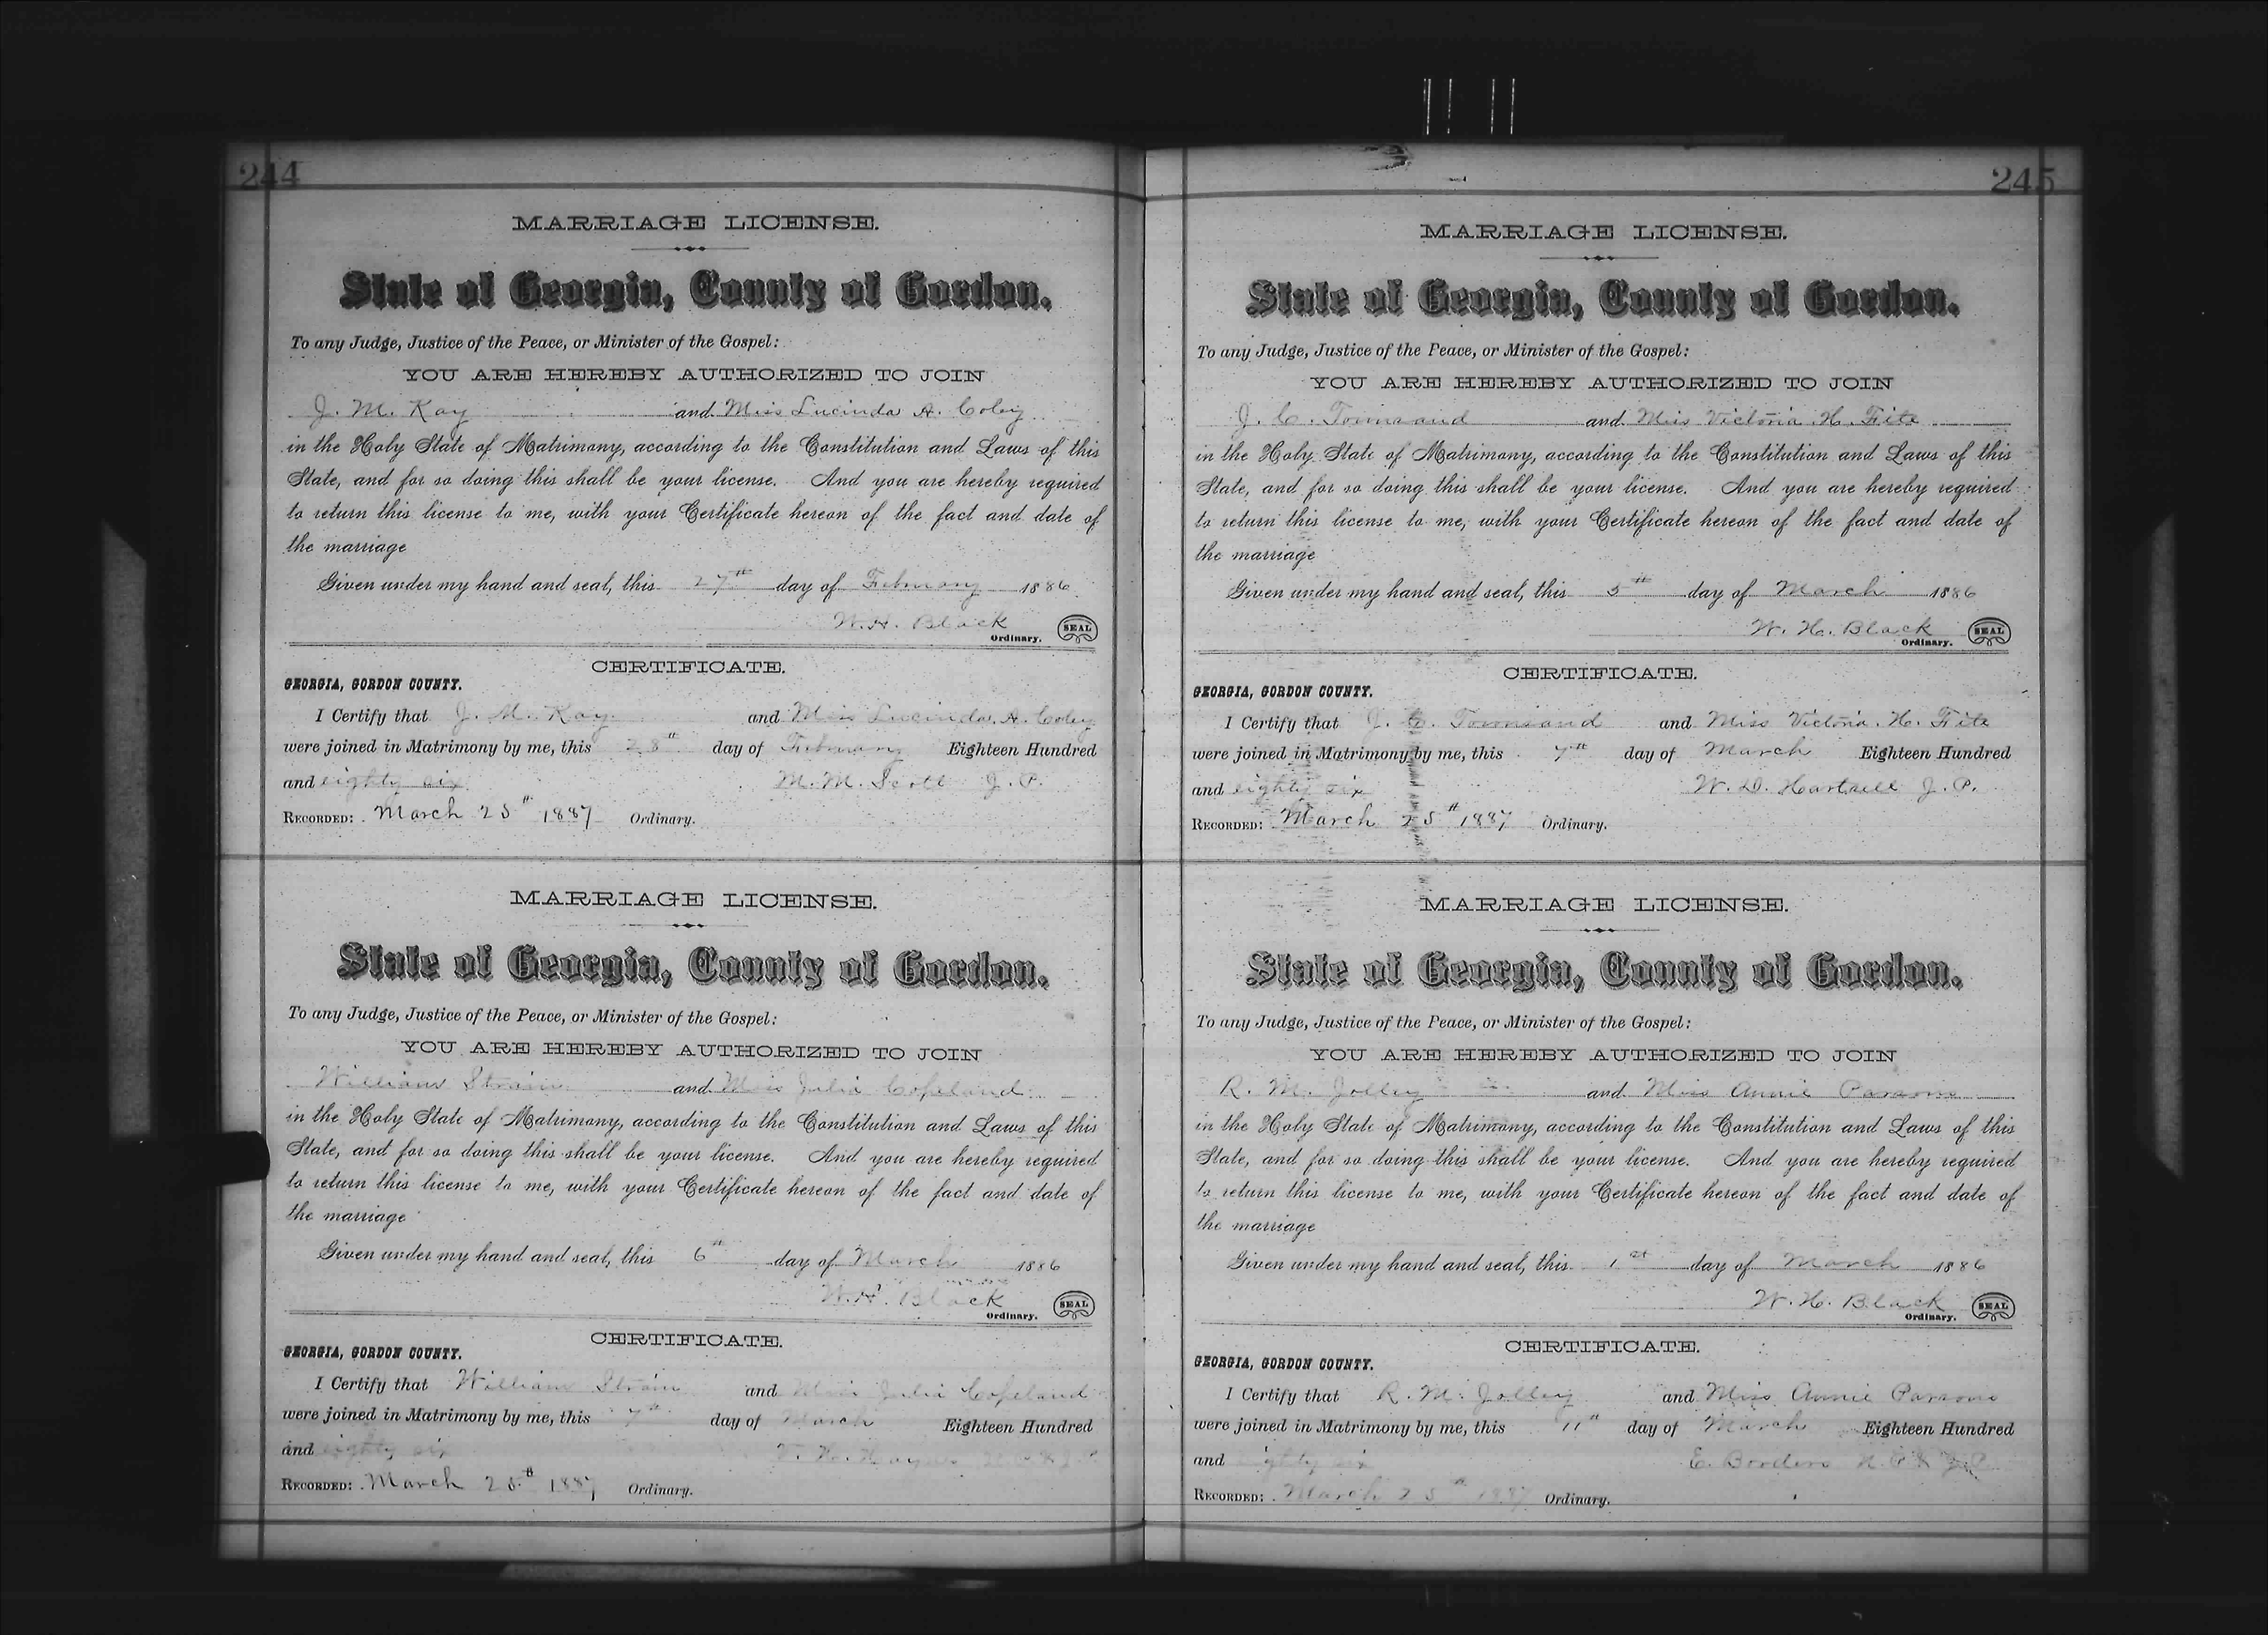 244
MARRIAGE LICENSE.
State of Georgia, County of Gordon.
To any Judge, Justice of the Peace, or Minister of the Gospel:
YOU ARE HEREBY AUTHORIZED TO JOIN
J. M. Kay and Miss Lucinda A. Coley
in the Holy State of Matrimony, according to the Constitution and Laws of this
State, and for so doing this shall be your license. And you are hereby required
to return this license to me, with your Certificate hereon of the fact and date of
the marriage
Given under my hand and seal, this 27th day of February 1886
W. H. Black
Ordinary. SEAL
CERTIFICATE.
GEORGIA, GORDON COUNTY.
I Certify that J. M. Kay and Miss Lucinda A. Coley
were joined in Matrimony by me, this 28th day of February Eighteen Hundred
and eighty six M. M. Scott J. P.
RECORDED: March 25th 1887 Ordinary.
MARRIAGE LICENSE.
State of Georgia, County of Gordon.
To any Judge, Justice of the Peace, or Minister of the Gospel:
YOU ARE HEREBY AUTHORIZED TO JOIN
William Strain and Miss Julia Copeland
in the Holy State of Matrimony, according to the Constitution and Laws of this
State, and for so doing this shall be your license. And you are hereby required
to return this license to me, with your Certificate hereon of the fact and date of
the marriage
Given under my hand and seal, this 6th day of March 1886
W. H. Black
Ordinary. SEAL
CERTIFICATE.
GEORGIA, GORDON COUNTY.
I Certify that William Strain and Miss Julia Copeland
were joined in Matrimony by me, this 7th day of March Eighteen Hundred
and eighty six
RECORDED: March 25th 1887 Ordinary.
245
MARRIAGE LICENSE.
State of Georgia, County of Gordon.
To any Judge, Justice of the Peace, or Minister of the Gospel:
YOU ARE HEREBY AUTHORIZED TO JOIN
J. C. Townsand and Miss Victoria H. Fite
in the Holy State of Matrimony, according to the Constitution and Laws of this
State, and for so doing this shall be your license. And you are hereby required
to return this license to me, with your Certificate hereon of the fact and date of
the marriage
Given under my hand and seal, this 5th day of March 1886
W. H. Black
Ordinary. SEAL
CERTIFICATE.
GEORGIA, GORDON COUNTY.
I Certify that J. C. Townsand and Miss Victoria H. Fite
were joined in Matrimony by me, this 7th day of March Eighteen Hundred
and eighty six W. D. Hartsell J. P.
RECORDED: March 25th 1887 Ordinary.
MARRIAGE LICENSE.
State of Georgia, County of Gordon.
To any Judge, Justice of the Peace, or Minister of the Gospel:
YOU ARE HEREBY AUTHORIZED TO JOIN
R. M. Jolley and Miss Annie Parsons
in the Holy State of Matrimony, according to the Constitution and Laws of this
State, and for so doing this shall be your license. And you are hereby required
to return this license to me, with your Certificate hereon of the fact and date of
the marriage
Given under my hand and seal, this 1st day of March 1886
W. H. Black
Ordinary. SEAL
CERTIFICATE.
GEORGIA, GORDON COUNTY.
I Certify that R. M. Jolley and Miss Annie Parsons
were joined in Matrimony by me, this 11th day of March Eighteen Hundred
and eighty six E. Borders N. P. & J. P.
RECORDED: March 25th 1887 Ordinary.